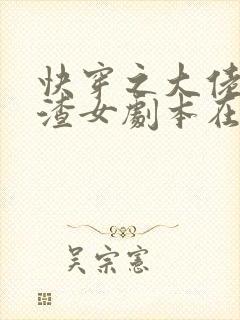 快穿之大佬
渣女劇本在
吴宗憲